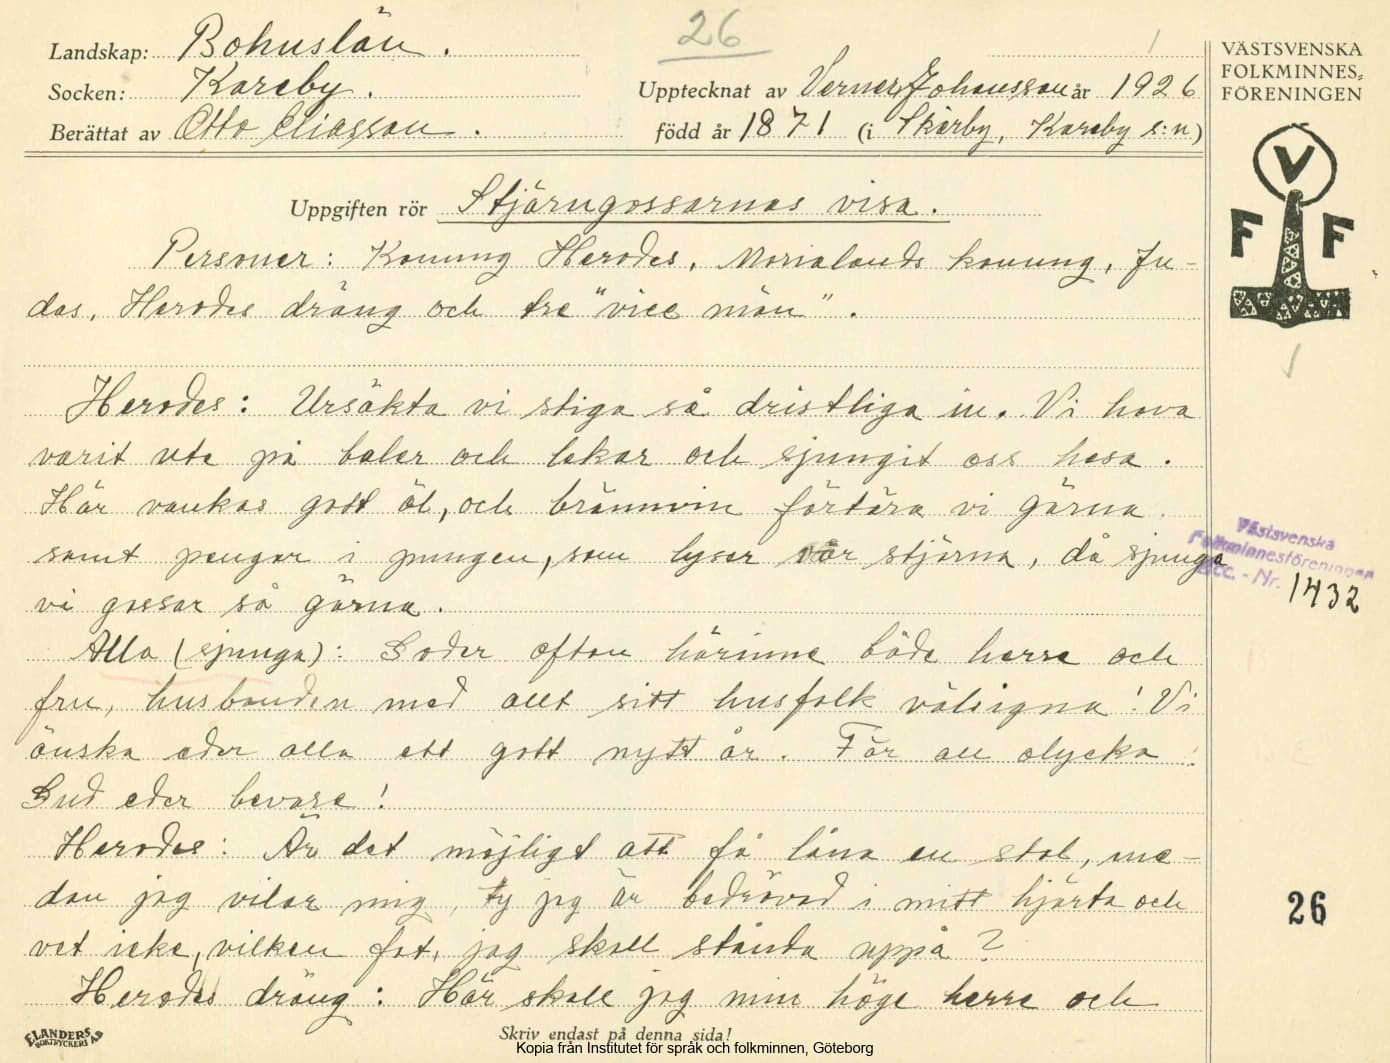 26
1
Landskap: Bohuslän.
Socken: Kareby.
Upptecknat av Verner Johansson år 1926
Berättat av Otto Eliasson.
född år 1871 (i Skårby, Kareby s:n)
VÄSTSVENSKA
FOLKMINNES-
FÖRENINGEN
V
F F
Uppgiften rör Stjärngossarnas visa.
Personer: Konung Herodes, Morialands konung, Ju-
das, Herodes dräng och tre "vice män".
Herodes: Ursäkta vi stiga så dristliga in. Vi hava
varit ute på baler och lekar och sjungit oss hesa.
Här vankas gott öl, och brännvin förtära vi gärna
samt pengar i pungen, som lyser vår stjärna, då sjunga
vi gossar så gärna.
Alla (sjunga): Goder afton härinne både herre och
fru, husbonden med allt sitt husfolk välsigna! Vi
önska eder alla ett gott nytt år. För all olycka
Gud eder bevare!
Herodes: Är det möjligt att få låna en stol, me-
dan jag vilar mig, ty jag är bedrövad i mitt hjärta och
vet icke, vilken fot, jag skall stånda uppå?
Herodes dräng: Här skall jag min höge herre och
Västsvenska
Folkminnesföreningen
Acc. - Nr. 1432
26
ELANDERS
BOKTRYCKERI AB
Skriv endast på denna sida!
Kopia från Institutet för språk och folkminnen, Göteborg